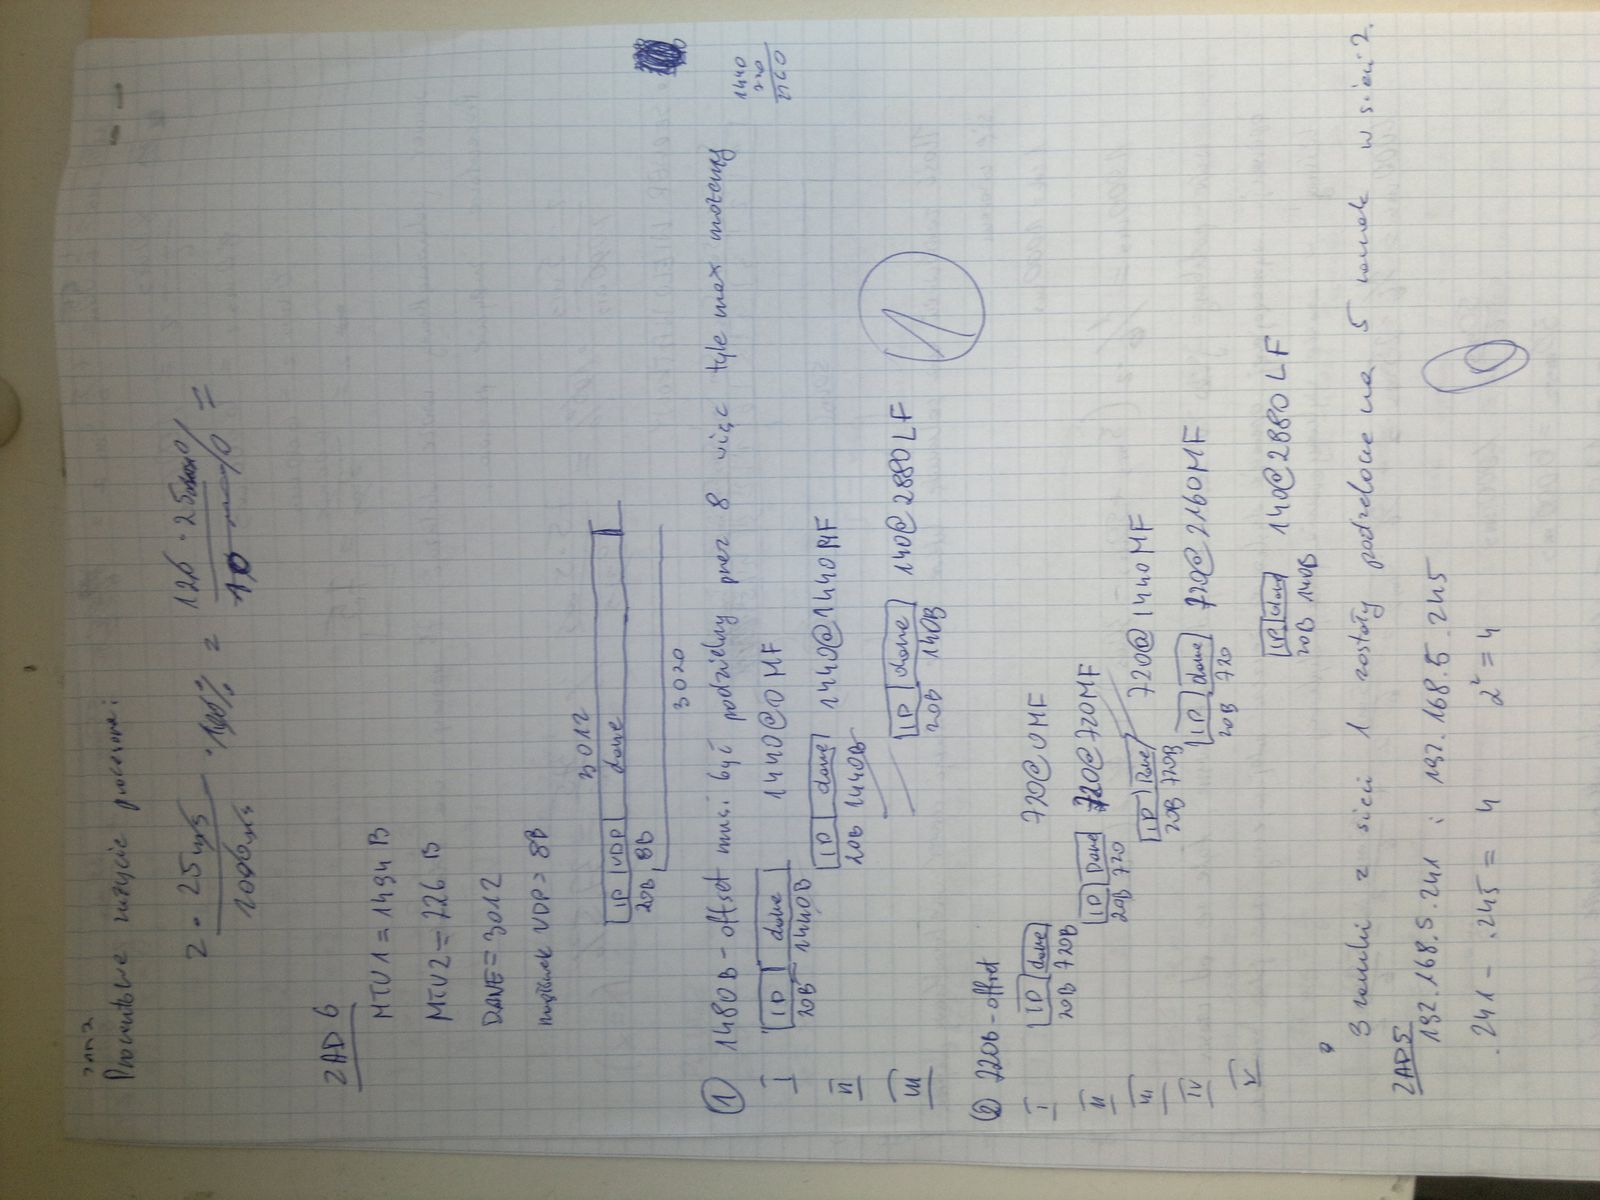 ZAD 2
Procentowe zużycie procesora:
2 · 25 ms / 1000 ms · 100% =
ZAD 6
MTU1 = 1494 B
MTU2 = 726 B
DANE = 3012
nagłówek UDP = 8B
3012
IP UDP dane
20B 8B
3020
1 1480B - offset musi być podzielny przez 8 więc tyle max możemy
1440
720
2160
I IP dane 1440@0 MF
20B 1440B
II IP dane 1440@1440 MF
20B 1440B
III IP dane 140@2880 LF
20B 140B
1
2 720B - offset
I IP dane 720@0MF
20B 720B
II IP Dane 720@720MF
20B 720
III IP Dane 720@1440MF
20B 720B
IV IP dane 720@2160MF
20B 720
V
IP dane 140@2880 LF
20B 140B
3 ramki z sieci 1 zostały podzielone na 5 ramek w sieci 2.
ZAD5
192.168.5.241 i 192.168.5.245
.241 - .245 = 4 2² = 4
0